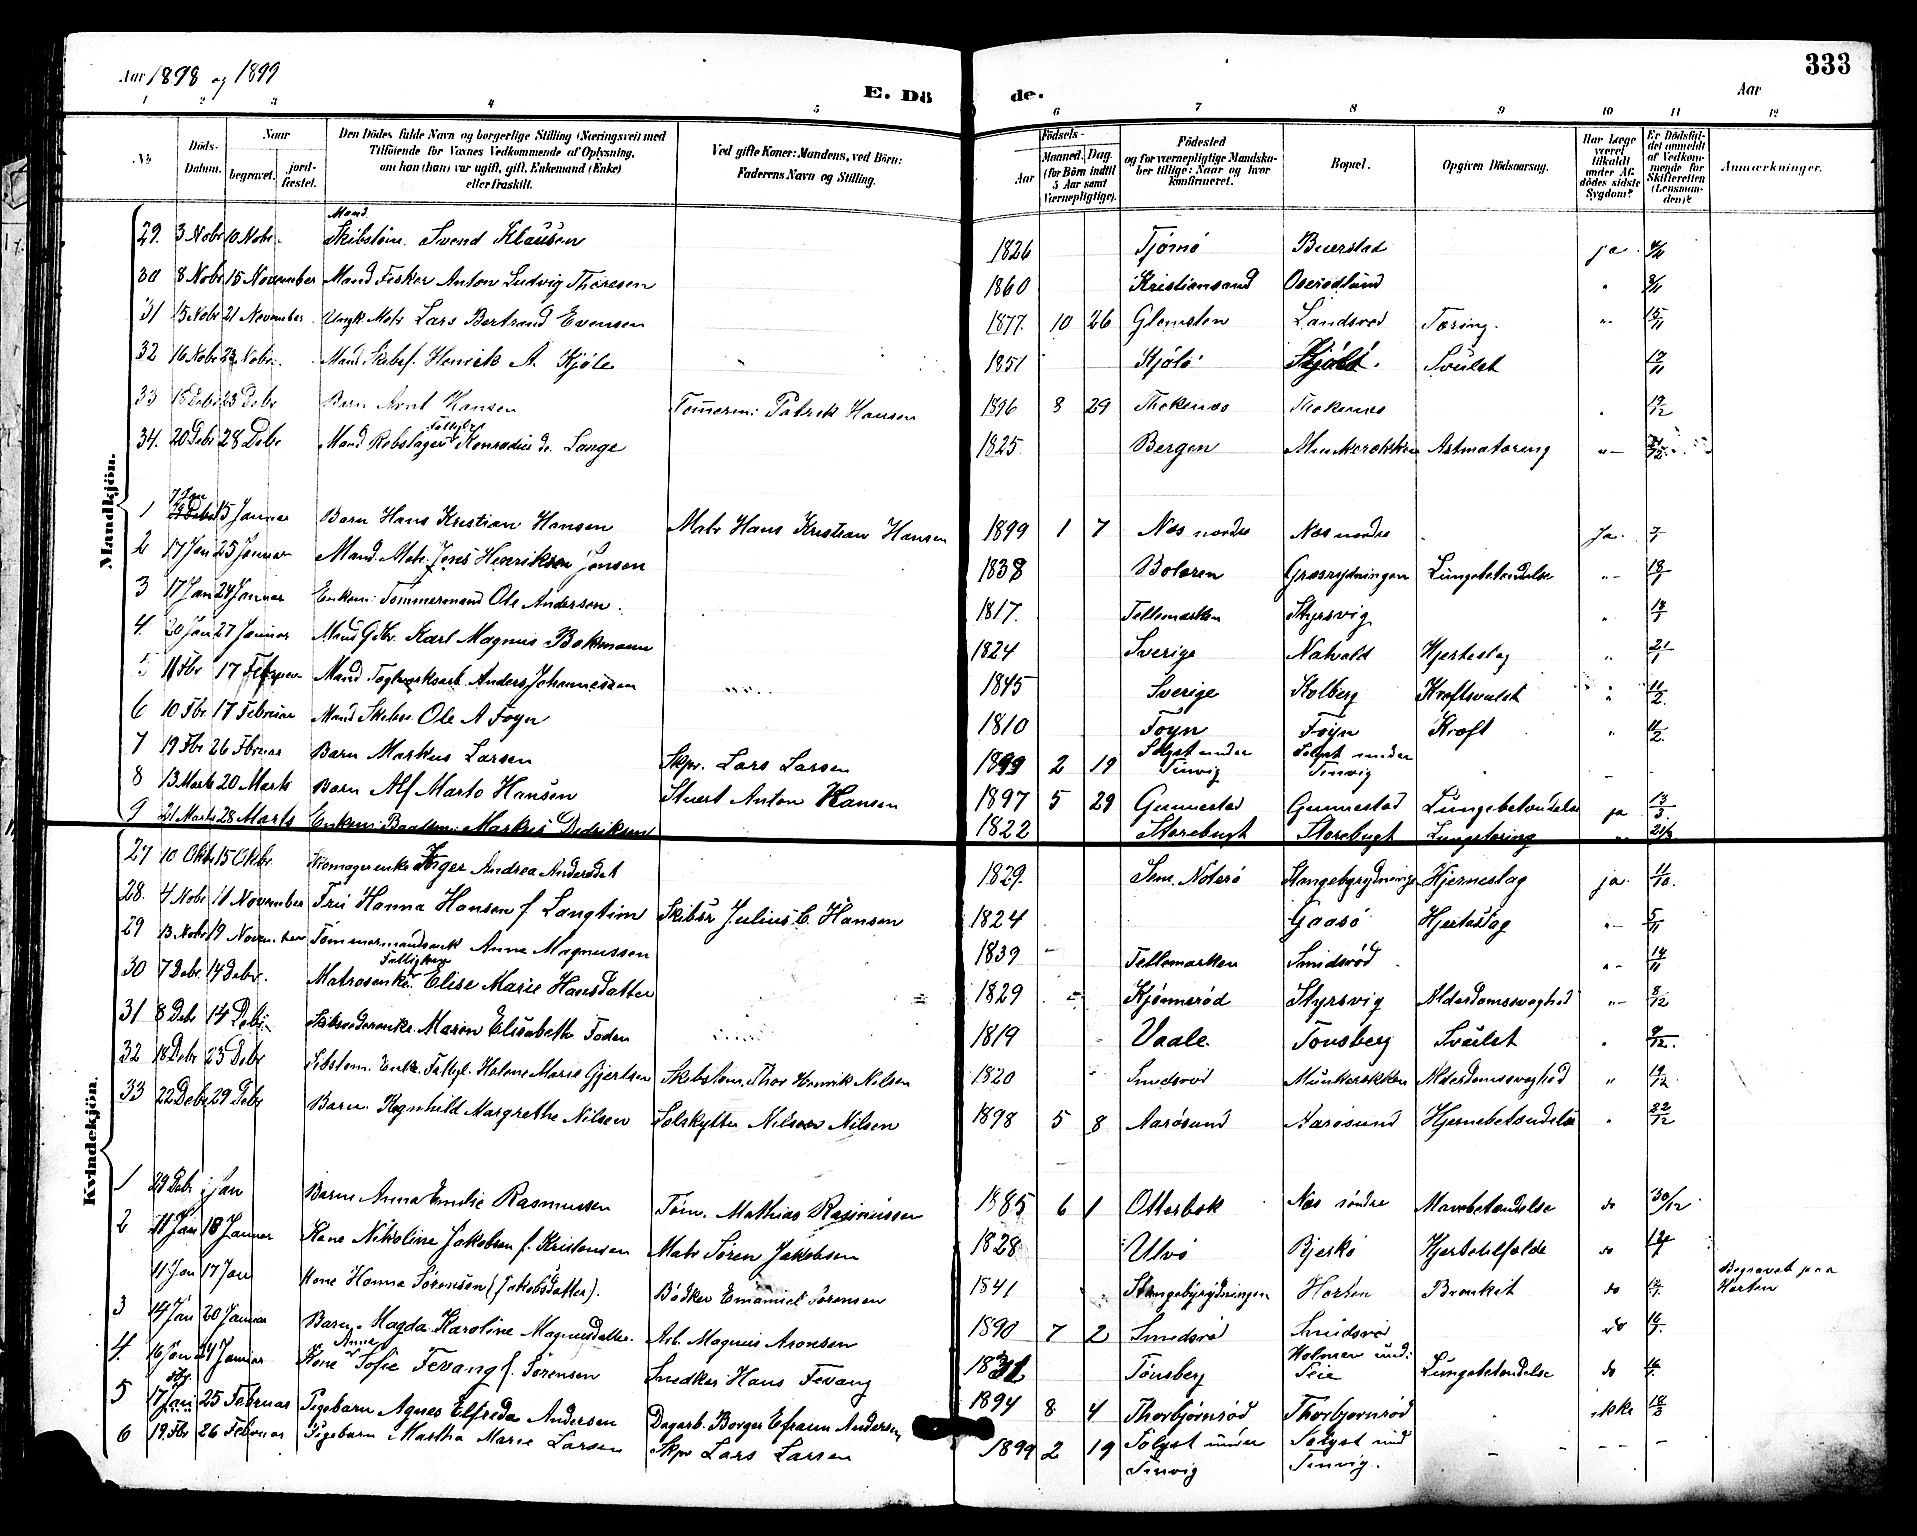 333
Aar 1898 og 1899
Aar
E. Dö de.
1 2 3 4 5 6 7 8 9 10 11 12
No
Döds-Datum.
Naar
begravet.
jord-fæstet.
Den Dödes fulde Navn og borgerlige Stilling (Næringsvei) med Tilföiende for Voxnes Vedkommende af Oplysning, om han (hun) var ugift, gift, Enkemand (Enke) eller fraskilt.
Ved gifte Koner: Mandens, ved Börn: Faderens Navn og Stilling.
Födsels-
Aar
Maaned. Dag.
(for Börn indtil 5 Aar samt Værnepligtige).
Födested
og for værnepligtige Mandskaber tillige: Naar og hvor konfirmeret.
Bopæl.
Opgiven Dödsaarsag.
Har Læge været tilkaldt under Afdödes sidste Sygdom?
Er Dödsfaldet anmeldt af Vedkommende for Skifteretten (Lensmanden)?
Anmærkninger.
Mandkjön.
29. 3 Nobr 10 Nobr. Mand. Skibstöm. Svend Klausen 1826 Tjømø Buerstad ja 4/11
30 8 Nobr 15 November Mand Fisker Anton Ludvig Thoresen 1860 Kristiansand Oserødlund " 8/11
31 15 Nobr 21 November Ungk. Matr Lars Bertrand Evensen 1877. 10 26 Glomsten Landsrød Tæring. " 15/11
32 16 Nobr 23 Nobr. Mand Skibsf. Henrik A. Kjøle 1851 Kjølö Kjølö. Svulst 17/11
33 18 Debr 23 Debr Barn Arnt Hansen Tømerm: Patrik Hansen 1896 8 29 Thokenæs Thokenæs 19/12
34. 20 Debr 28 Debr Mand Rebslager Fattigl. Konradius de Lange 1825 Bergen Munkerøkken Astmatæring "
1 7 Jan 15 Januar Barn Hans Kristian Hansen Matr Hans Kristian Hansen 1899 1 7 Næs nordre Næs nordre Ja.
2 17 Jan 25 Januar Mand Matr. Jens Henriksen Jensen 1838 Bolæren Græsrydningen Lungebetændelse " 18/1
3 17 Jan 24 Januar Enkem: Tømmermand Ole Andersen. 1817. Tellemarken Styrsvig " 18/1
4. 20 Jan 27 Januar Mand Gbr. Karl Magnus Bokmann 1824 Sverige Nalvald Hjerteslag " 21/1
5 11 Fbr 17 Februar Mand Teglverksarb. Anders Johannessen 1845 Sverige Kolberg Kræftsvulst " 11/2
6 10 Fbr 17 Februar Mand Skibsr Ole A Foyn 1810 Foyn Foyn Kræft " 11/2
7 19 Fbr 26 Fbruar Barn Markus Larsen Skpr. Lars Larsen 1899 2 19 Solyst under Tinvig Solyst under Tinvig
8 13 Marts 20 Marts Barn Alf Marto Hansen Stuert Anton Hansen 1897 5 29 Gunnestad Gunnestad Lungebetændelse ja 13/3
9 21 Marts 28 Marts Enkem: Baadsm: Markus Dedriksen 1822 Storebugt Storebugt Lungetæring " 21/3
Kvindekjön.
27 10 Oktb 15 Oktbr. Skomagerenke Inger Andrea Andersdat 1829. Sem. Nøterø Stangebyrydningen Hjerneslag ja. 11/10.
28. 4 Nobr 11 November Fru Hanna Hansen f. Langtim Skibsr Julius C. Hansen 1824 Gaasø Hjerteslag " 5/11
29 13 Nobr 19 November Tømmermandsenk Anne Magnussen 1839 Tellemarken Smidsrød " 14/11
30 7 Debr. 14 Debr. Matrosenke Fattiglem Elise Marie Hansdatter 1829 Kjønnerød Styrsvig Alderdomssvaghed " 8/12
31 8 Debr 14 Debr. Maren Elisabeth Foden 1819 Vaale Tønsberg Svulst " 9/12.
32 18 Debr 23 Debr Skbstøm. Enke Fattigl. Helene Marie Gjertsen Skibstøm. Thor Henrik Nilsen 1820 Smedsrød Munkerøkken Alderdomssvaghed " 19/12
33 22 Debr 29 Debr Barn Ragnhild Margrethe Nilsen Selskytter Nilsen Nilsen 1898 5 8 Aarøsund Aarøsund Hjernebetændelse " 22/12
1 29 Debr Jan Barn Anna Emilie Rasmussen Tøm. Mathias Rasmussen 1885 6 1 Otterbæk Næs søndre Mavebetændelse do 30/12
2 11 Jan 18 Januar Kone Nikoline Jakobsen f. Kristensen Matr Søren Jakobsen 1828 Ulvø Bjerkø Hjertehlfælde do
11 Jan 17 Jan Kone Hanna Sørensen (Jakobsdatter). Bødker Emanuel Sørensen 1841 Stangebyrydningen Horten Bronkit do Begravet paa Horten
3 14 Jan 20 Januar Barn Magda Karoline Magnusdatter Arb. Magnus Aronsen 1890 7 2 Smedsrød Smidsrød do
4. 16 Jan Januar Kone Anne Sofie Fevang f. Sørensen Snedker Hans Fevang 1831 Tønsberg Holmen und: Teie Lungebetændelse do
5 17 25 Februar Pigebarn Agnes Elfrida Andersen Dagarb. Borger Efraim Andersen 1894 8 4 Thorbjørnrød Thorbjørnrød ikke
6 19. Fbr 26 Februar Pigebarn Martha Marie Larsen Skpr Lars Larsen 1899 2 19 Solyst under Tinvig Solyst und Tinvig.